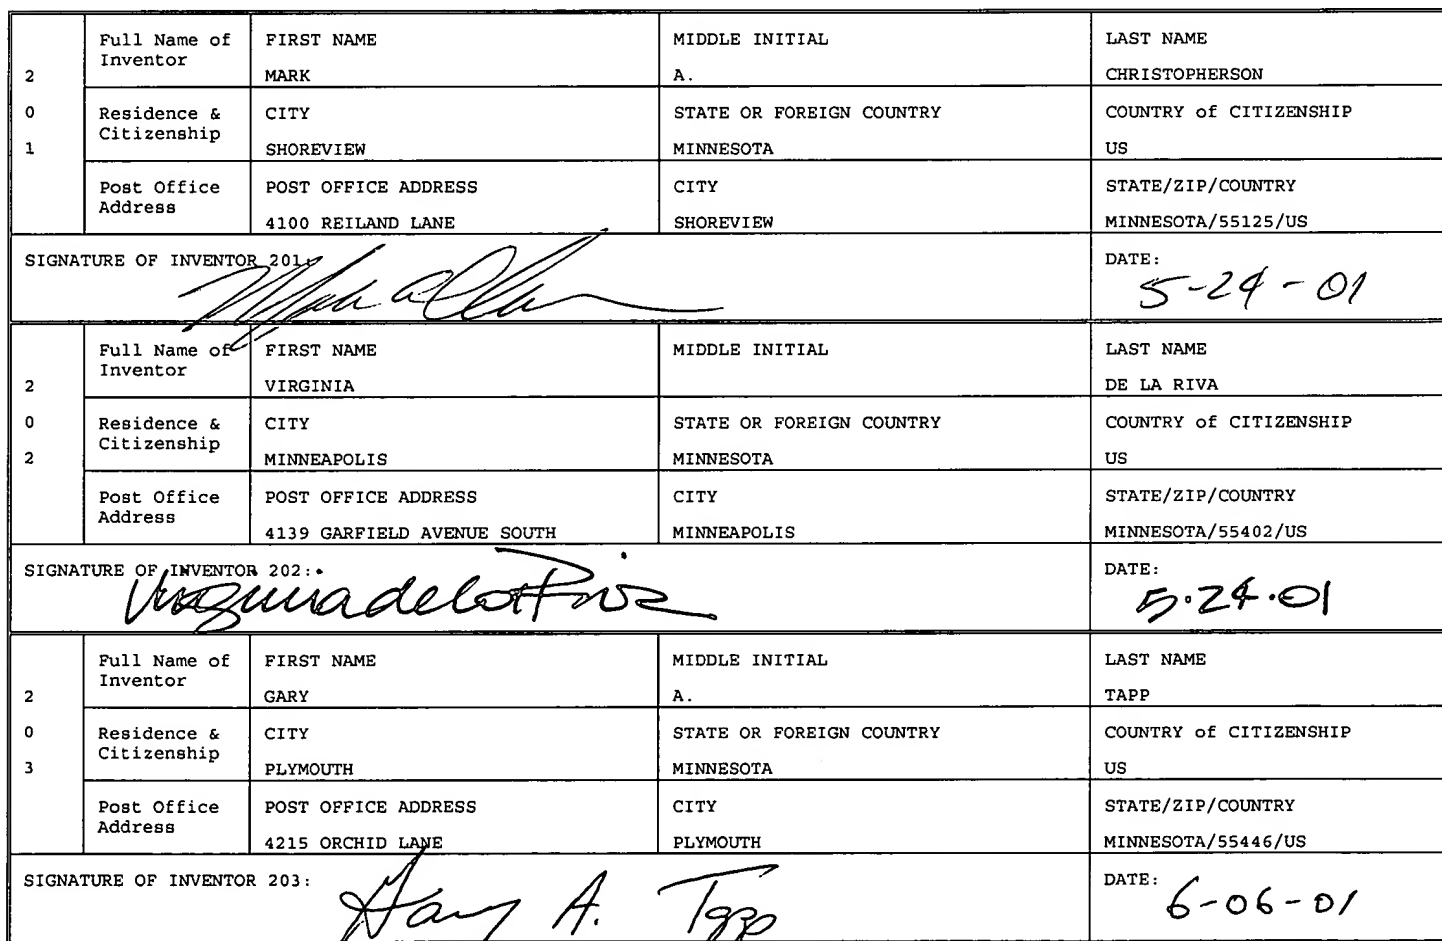 2
0
1
Full Name of Inventor
FIRST NAME
MARK
MIDDLE INITIAL
A.
LAST NAME
CHRISTOPHERSON
Residence & Citizenship
CITY
SHOREVIEW
STATE OR FOREIGN COUNTRY
MINNESOTA
COUNTRY of CITIZENSHIP
US
Post Office Address
POST OFFICE ADDRESS
4100 REILAND LANE
CITY
SHOREVIEW
STATE/ZIP/COUNTRY
MINNESOTA/55125/US
SIGNATURE OF INVENTOR 201:
DATE:
5-24-01
2
0
2
Full Name of Inventor
FIRST NAME
VIRGINIA
MIDDLE INITIAL
LAST NAME
DE LA RIVA
Residence & Citizenship
CITY
MINNEAPOLIS
STATE OR FOREIGN COUNTRY
MINNESOTA
COUNTRY of CITIZENSHIP
US
Post Office Address
POST OFFICE ADDRESS
4139 GARFIELD AVENUE SOUTH
CITY
MINNEAPOLIS
STATE/ZIP/COUNTRY
MINNESOTA/55402/US
SIGNATURE OF INVENTOR 202:
Virginia de la Riva
DATE:
5.24.01
2
0
3
Full Name of Inventor
FIRST NAME
GARY
MIDDLE INITIAL
A.
LAST NAME
TAPP
Residence & Citizenship
CITY
PLYMOUTH
STATE OR FOREIGN COUNTRY
MINNESOTA
COUNTRY of CITIZENSHIP
US
Post Office Address
POST OFFICE ADDRESS
4215 ORCHID LANE
CITY
PLYMOUTH
STATE/ZIP/COUNTRY
MINNESOTA/55446/US
SIGNATURE OF INVENTOR 203:
Gary A. Tapp
DATE:
6-06-01